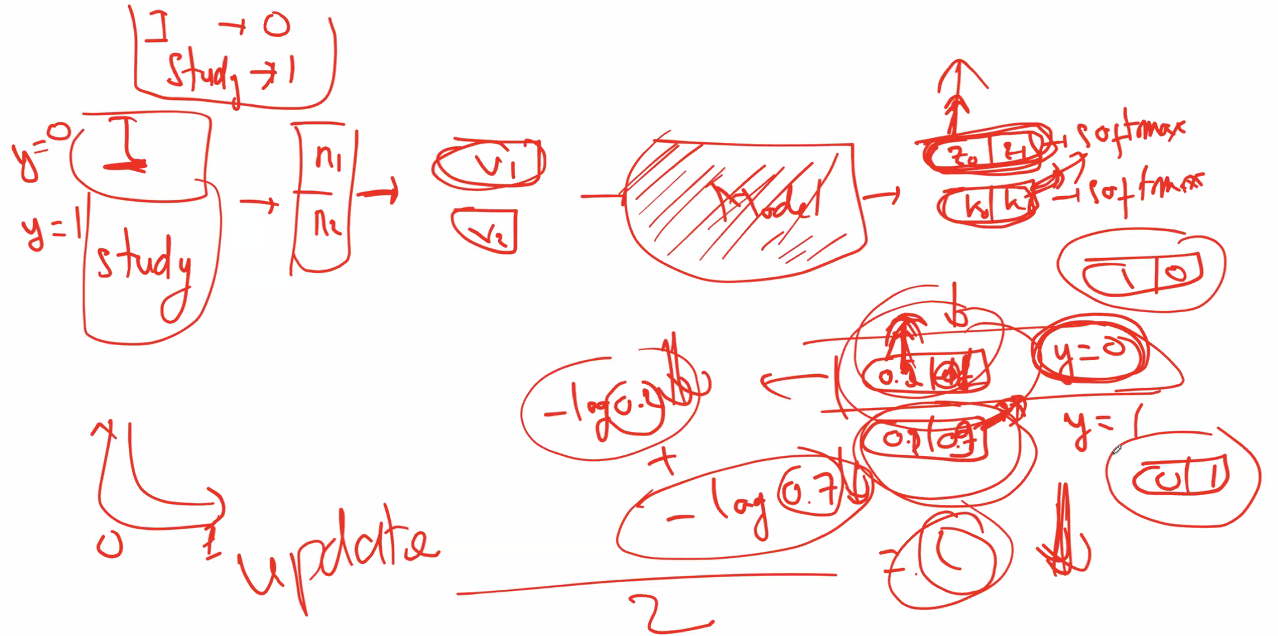 I → 0
Study → 1
y=0
I
y=1
study
n1
n2
V1
V2
Model
z0 z1 → softmax
k0 k → softmax
1 0
b
y=0
0.2
-log 0.2
+
0.7
y=1
-log 0.7
0 1
0 1
update
2